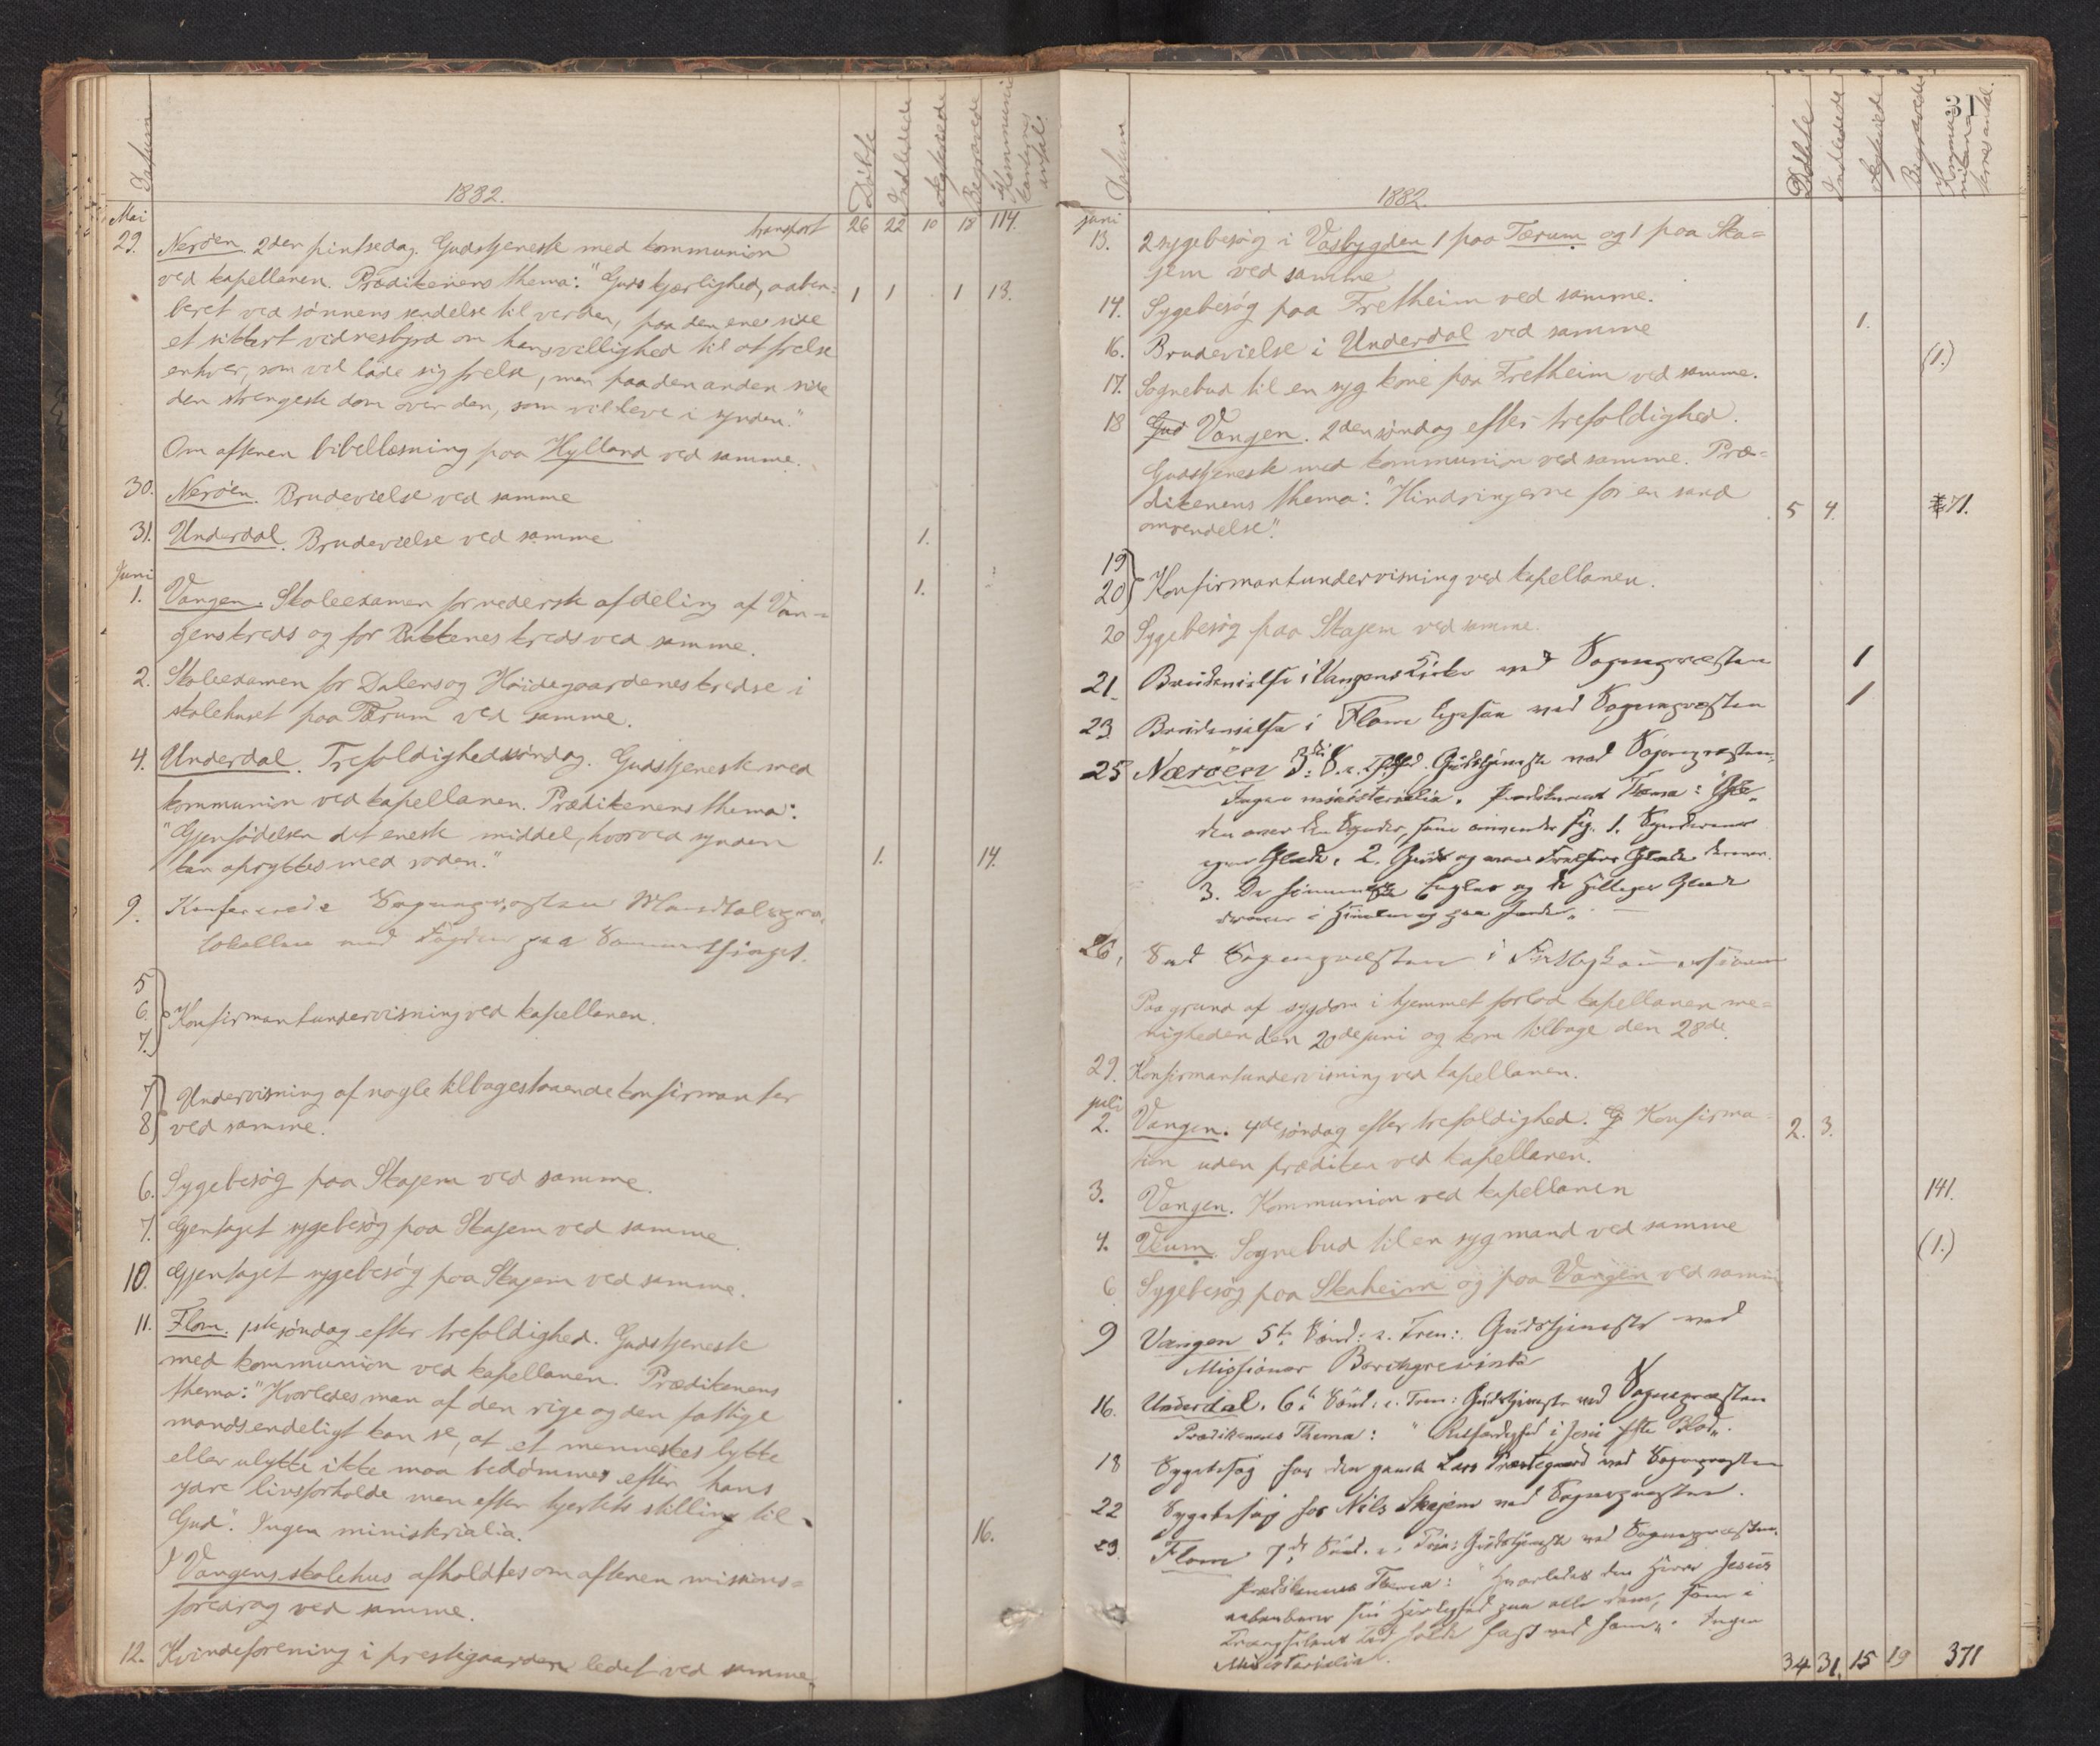 Datum
1882.
Döbte
Indledede
Ægteviede
Begravede
Kommuni
kanternes
antal.
Mai
transport 26 22 10 18 114.
29. Nerøen. 2den pintsedag. Gudstjeneste med kommunion
ved kapellanen. Prædikenens thema: "Guds kjærlighed, aaben- 1 1 1 13.
baret ved sønnens sendelse til verden, paa den ene side
et sikkert vidnesbyrd om hans villighed til at frelse
enhver, som vil lade sig frelse, men paa den anden side
den strengeste dom over den, som vil leve i synden."
Om aftenen bibellæsning paa Hylland ved samme.
30. Nerøen. Brudevielse ved samme
31. Underdal. Brudevielse ved samme 1.
Juni
1. Vangen. Skoleexamen for nederste afdeling af Van- 1.
genskreds og for Bakkenes kreds ved samme.
2. Skoleexamen for Dalens og Höidegaardenes kredse i
skolehuset paa Tærum ved samme.
4. Underdal. Trefoldighedssöndag. Gudstjeneste med
kommunion ved kapellanen. Prædikenens thema:
"Gjenfödelsen det eneste middel, hvorved synden
kan oprykkes med roden." 1. 14.
9. Konfererede Sognepræsten Mandtalspro-
tokollen med Fogden paa Sommerthinget.
5
6. Konfirmantundervisning ved kapellanen.
7.
7 Undervisning af nogle tilbagestaaende konfirmanter
8 ved samme.
6. Sygebesög paa Skajem ved samme.
7. Gjentaget sygebesög paa Skajem ved samme.
10. Gjentaget sygebesög paa Skajem ved samme.
11. Flom. 1ste söndag efter trefoldighed. Gudstjeneste
med kommunion ved kapellanen. Prædikenens
thema: "Hvorledes man af den rige og den fattige
mands endeligt kan se, at et menneskes lykke
eller ulykke ikke maa bedömmes efter hans
ydre livsforholde men efter hjertets stilling til
Gud". Ingen ministerialia. 16.
I Vangens skolehus afholdtes om aftenen missions-
foredrag ved samme.
12. Kvindeforening i prestegaarden ledet ved samme.
31
Datum
1882.
Döbte
Indledede
Ægteviede
Begravede
Kommu-
nikan-
ternes antal.
juni
13. 2 sygebesög i Vasbygden 1 paa Tærum og 1 paa Ska-
jem ved samme
14. Sygebesög paa Fretheim ved samme.
16. Brudevielse i Underdal ved samme 1.
17. Sognebud til en syg kone paa Fretheim ved samme. (1.)
18 Gud Vangen. 2den söndag efter trefoldighed.
Gudstjeneste med kommunion ved samme. Præ-
dikenens thema: "Hindringerne for en sand
omvendelse". 5 4. 71.
19
20 Konfirmantundervisning ved kapellanen.
20 Sygebesög paa Skajem ved samme.
21. Brudevielse i Vangens Kirke ved Sognepræsten 1
23. Brudevielse i Flom Capel ved Sognepræsten 1
25 Nærøen 3die S. e. Trefhed. Gudstjeneste ved Sognepræsten,
Ingen ministerialia. Prædikenens Thema: Glæ-
den over den Synder, som omvender sig. 1. Synderens
egen Glæde. 2. Guds og vor Frelsers Glæde derover.
3. De himmelske Engles og de Helliges Glæde
derover i Himlen og paa Jorden".
26, Ved Sognepræsten i
Paa grund af sygdom i hjemmet forlod kapellanen me-
nigheden den 20de juni og kom tilbage den 28de.
29. Konfirmantundervisning ved kapellanen.
juli
2. Vangen. 4de söndag efter trefoldighed. G Konfirma- 2. 3.
tion uden prædiken ved kapellanen.
3. Vangen. Kommunion ved kapellanen 141.
4. Veum. Sognebud til en syg mand ved samme (1.)
6 Sygebesög paa Skaheim og paa Vangen ved samme
9 Vangen 5te Sönd: e. Tren: Gudstjeneste ved
Missionær Borchgrevink
16. Underdal. 6te Sönd: e. Tren: Gudstjeneste ved Sognepræsten
Prædikenens Thema: "Retfærdighed i Jesu
18 Sygebesög hos den gamle Lars Præstegaard ved Sognepræsten
22 Sygebesög hos Nils Skajem ved Sognepræsten.
23. Flom 7de Sönd. e. Trin: Gudstjeneste ved Sognepræsten.
Prædikenens Thema: "Hvorledes den Herre Jesus
aabenbarer sin Herlighed paa alle dem, som i
Trængselens Tid holde fast ved ham". Ingen
Ministerialia. 34 31. 15 19 371